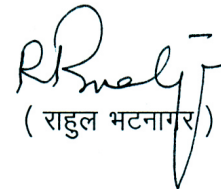 ( राहुल भटनागर )